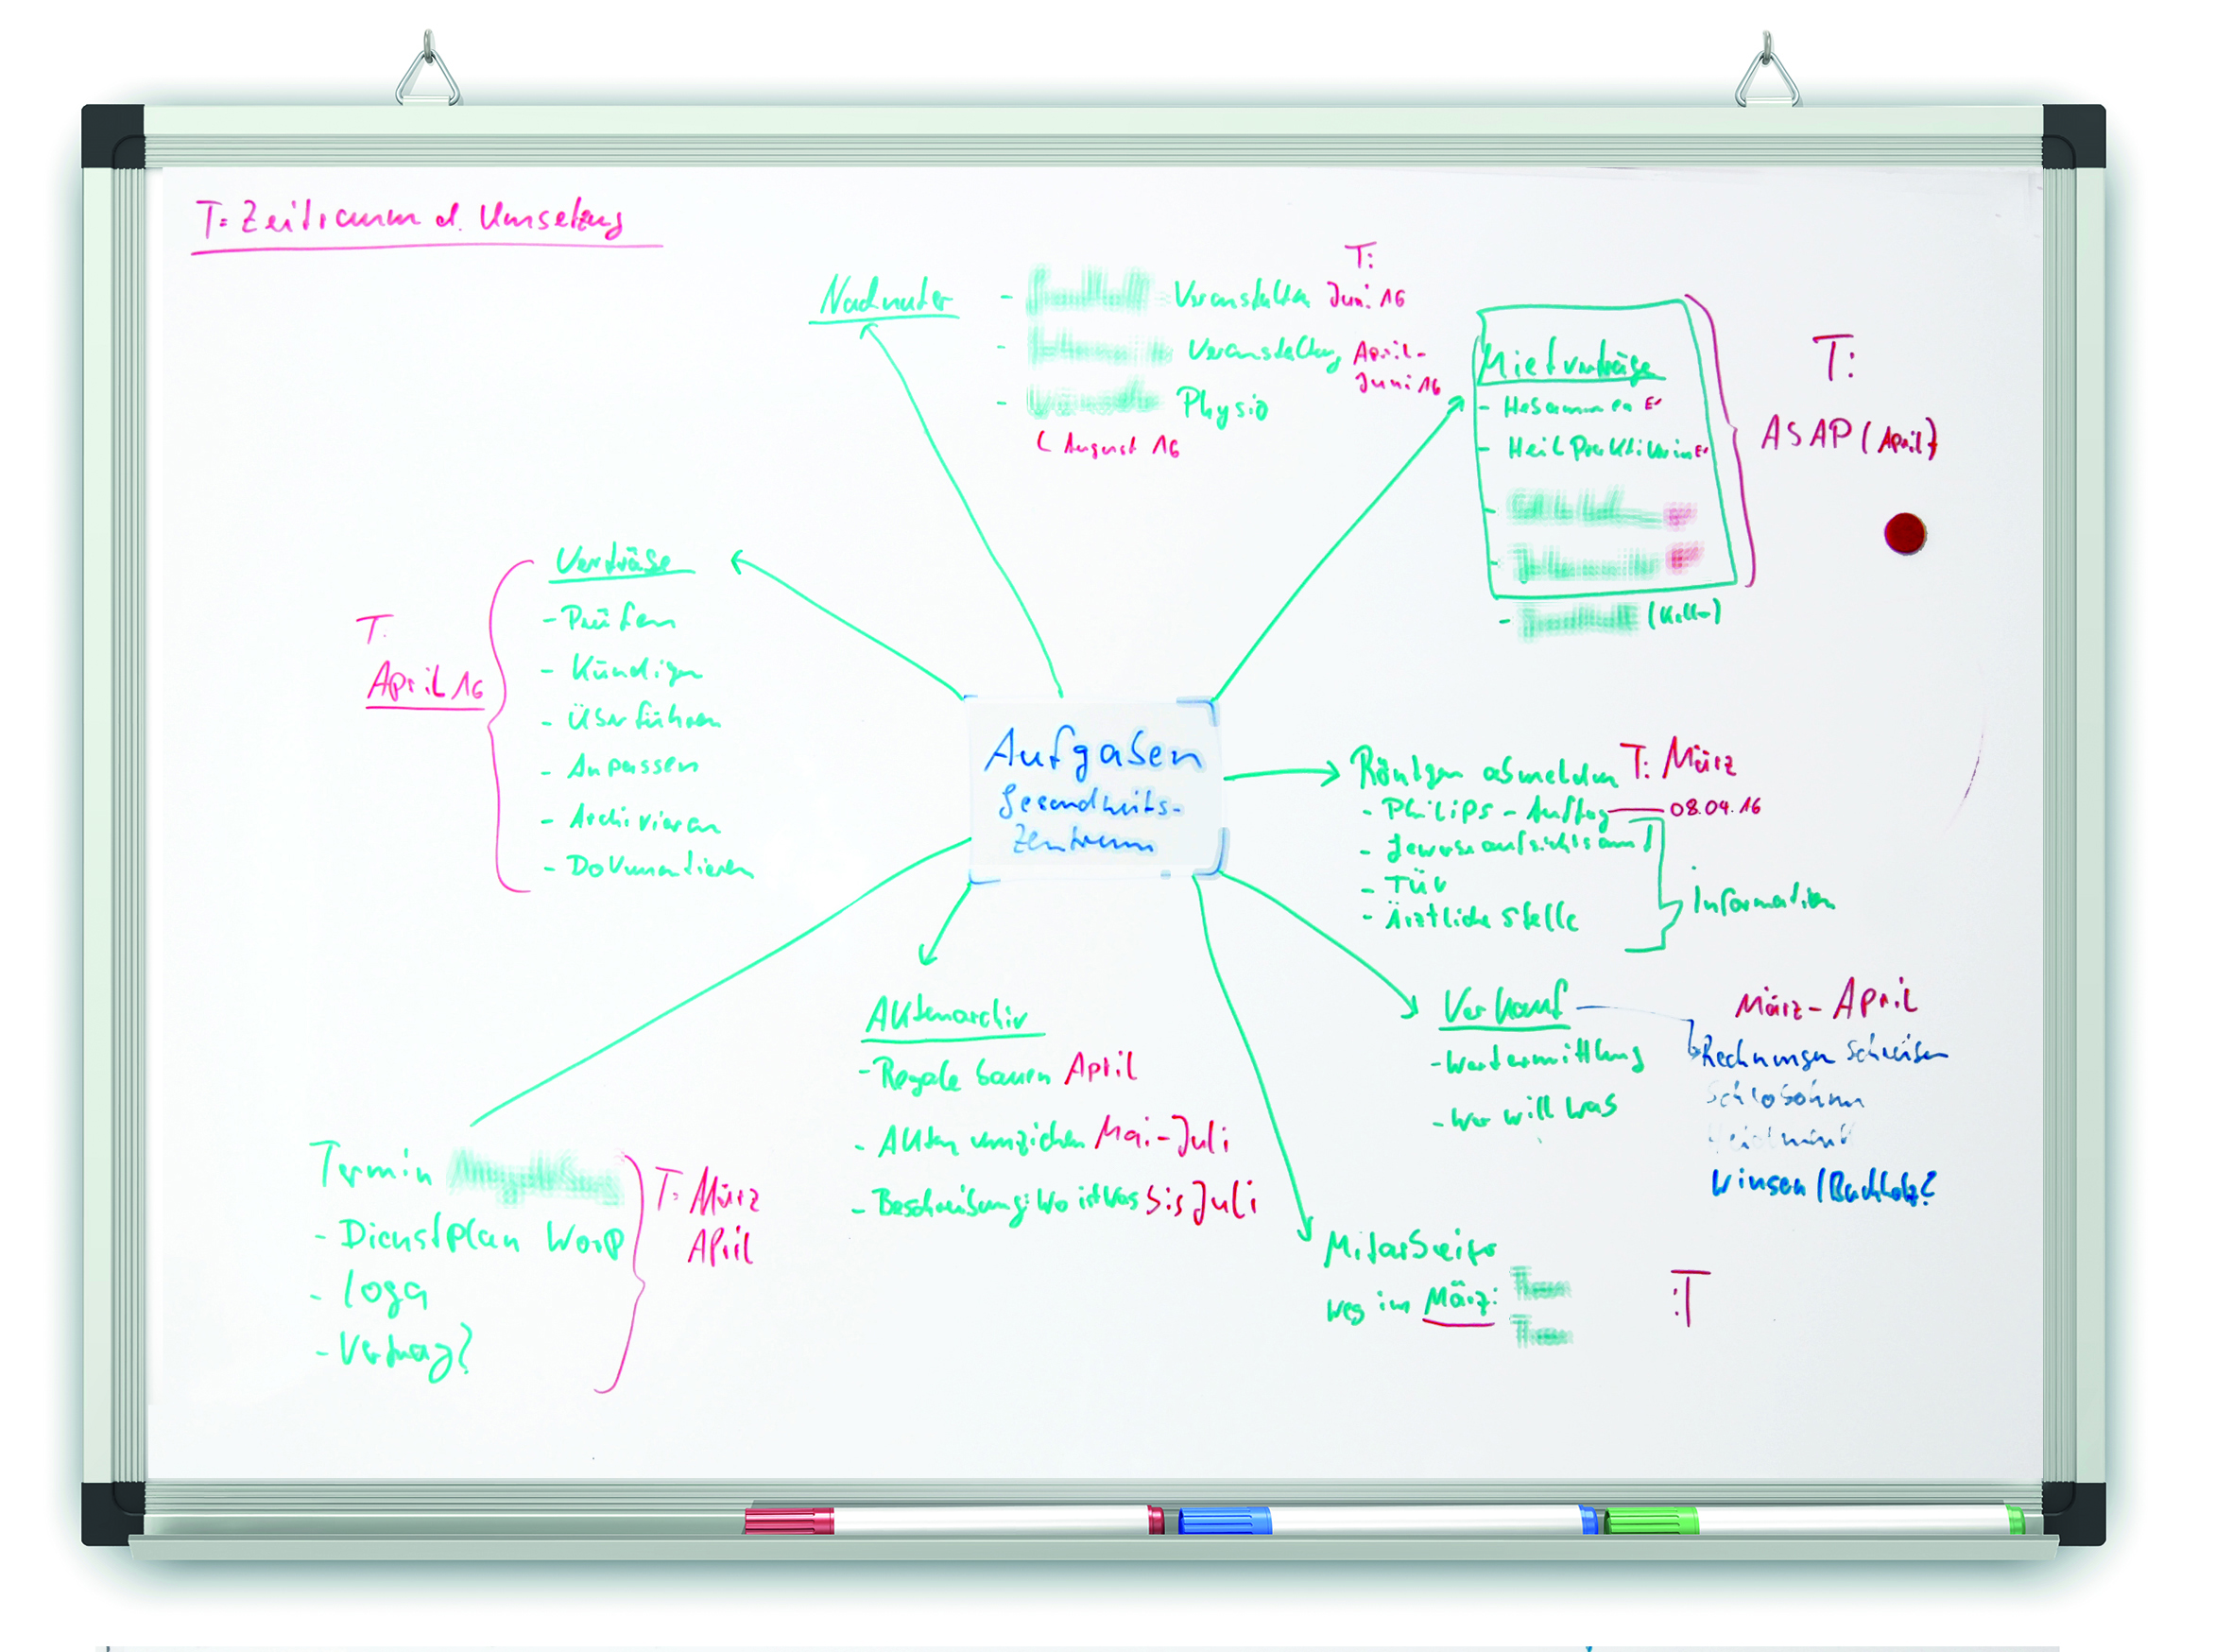 T: Zeitraum d. Umsetzung
Nachnutzer
T:
- Veranstalter Juni 16
- Veranstaltung April-
Juni 16
- Physio
( August 16
Mietverträge
- Hebammen
- Heilpraktikerin
- (Keller)
T:
ASAP (April)
Verträge
- Prüfen
- Kündigen
- Überführen
- Anpassen
- Archivieren
- Dokumentieren
T.
April 16
Aufgaben
Gesundheits-
Zentrum
Röntgen abmelden T: März
- Philips - Auftrag 08.04.16
- Gewerbeaufsichtsamt
- TÜV
- Ärztliche Stelle
Information
Verkauf
- Wertermittlung
- Wer will was
März - April
Rechnungen schreiben
Winsen / Buchholz?
Aktenarchiv
- Regale bauen April
- Akten umziehen Mai - Juli
- Beschreibung: Wo ist Was bis Juli
Mitarbeiter
weg im März:
:T
Termin
- Dienstplan Worp
- Loga
- Vertrag?
T: März
April